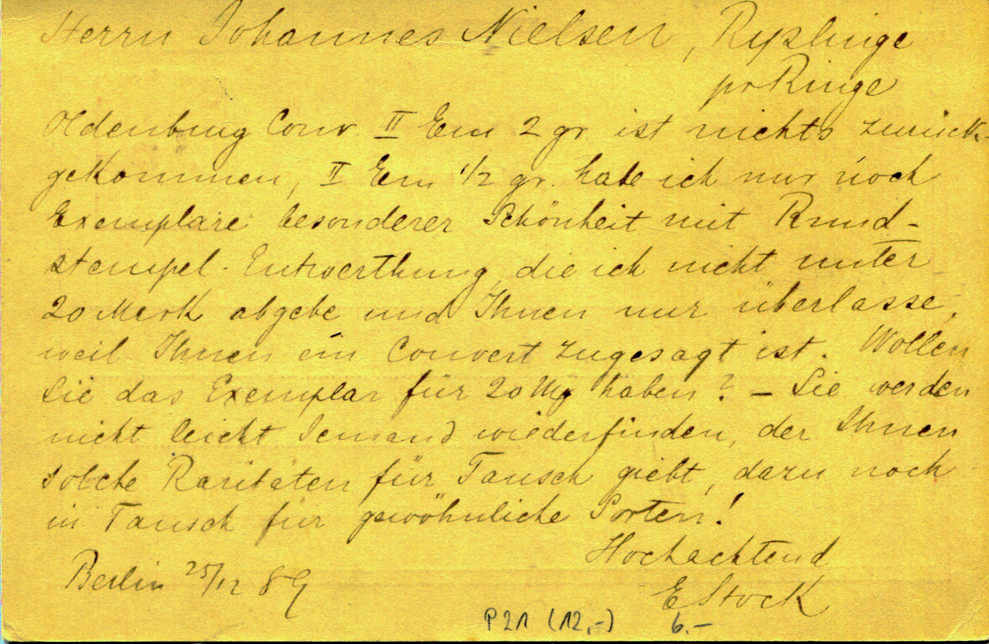 Herrn Johannes Nielsen, Ryslinge
pr Ringe
Oldenburg Conv. II Em 2 gr ist nichts zurück-
gekommen, II Em 1/2 gr. habe ich nur noch
Exemplare besonderer Schönheit mit Rund-
stempel-Entwerthung, die ich nicht unter
20 Mark abgebe und Ihnen nur überlasse,
weil Ihnen ein Couvert zugesagt ist. Wollen
Sie das Exemplar für 20 Mg haben? – Sie werden
nicht leicht Jemand wiederfinden, der Ihnen
solche Raritäten für Tausch giebt, dazu noch
in Tausch für gewöhnliche Sorten!
Hochachtend
Berlin 25/12 89
E Stock
P21 (12,-) 6.-